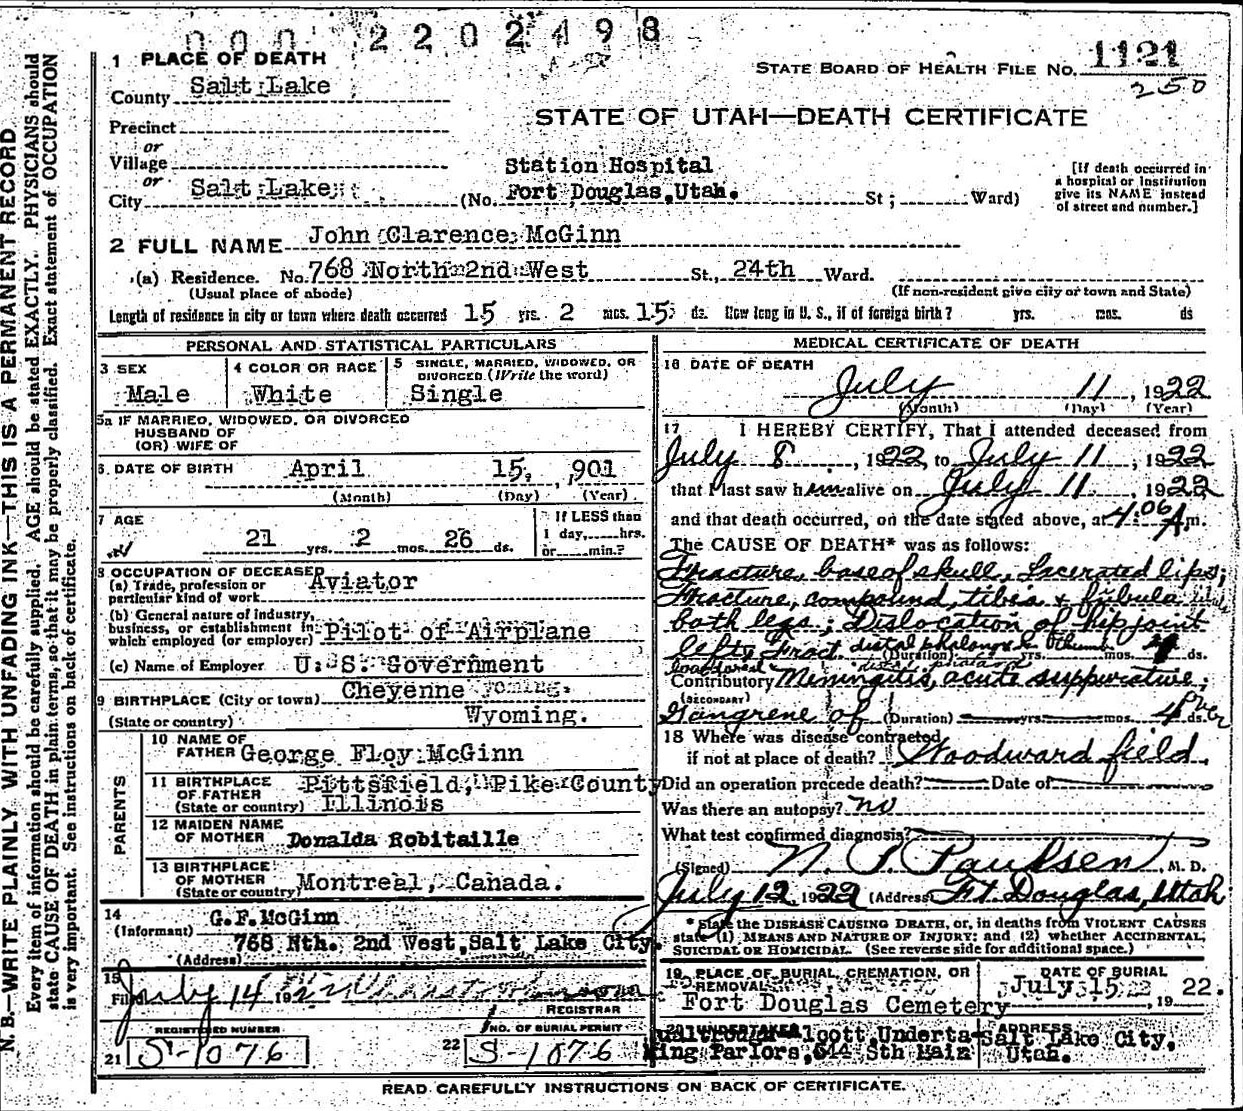 000 2202498
1 PLACE OF DEATH
STATE BOARD OF HEALTH FILE NO. 1121
250
County Salt Lake
STATE OF UTAH—DEATH CERTIFICATE
Precinct
or
Village
or
City Salt Lake
Station Hospital
(No. Fort Douglas, Utah. St; Ward)
[If death occurred in
a hospital or institution
give its NAME instead
of street and number.]
2 FULL NAME John Clarence McGinn
(a) Residence. No. 768 North 2nd West St., 24th Ward.
(Usual place of abode)
(If non-resident give city or town and State)
Length of residence in city or town where death occurred 15 yrs. 2 mos. 15 ds. How long in U. S., if of foreign birth? yrs. mos. ds
PERSONAL AND STATISTICAL PARTICULARS
3 SEX
Male
4 COLOR OR RACE
White
5 SINGLE, MARRIED, WIDOWED, OR
DIVORCED (Write the word)
Single
5a IF MARRIED, WIDOWED, OR DIVORCED
HUSBAND OF
(OR) WIFE OF
6. DATE OF BIRTH April 15, 901
(Month) (Day) (Year)
7 AGE
21 yrs. 2 mos. 26 ds.
If LESS than
1 day, hrs.
or min.?
8 OCCUPATION OF DECEASED
(a) Trade, profession or
particular kind of work Aviator
(b) General nature of industry,
business, or establishment in
which employed (or employer) Pilot of Airplane
(c) Name of Employer U. S. Government
9 BIRTHPLACE (City or town) Cheyenne
(State or country) Wyoming.
PARENTS
10 NAME OF
FATHER George Floy McGinn
11 BIRTHPLACE
OF FATHER Pittsfield, Pike County
(State or country) Illinois
12 MAIDEN NAME
OF MOTHER Donalda Robitaille
13 BIRTHPLACE
OF MOTHER
(State or country) Montreal, Canada.
14
(Informant) G.F.McGinn
768 Nth. 2nd West, Salt Lake City.
(Address)
15
Filed July 14 192
REGISTRAR
REGISTERED NUMBER
21 S-1076
NO. OF BURIAL PERMIT
22 S-1076
MEDICAL CERTIFICATE OF DEATH
16 DATE OF DEATH
July 11, 1922
(Month) (Day) (Year)
17 I HEREBY CERTIFY, That I attended deceased from
July 8, 1922, to July 11, 1922
that I last saw him alive on July 11, 1922
and that death occurred, on the date stated above, at 4:06 A m.
The CAUSE OF DEATH* was as follows:
Fracture, base of skull, Lacerated lips;
Fracture, compound, tibia & fibula
both legs; Dislocation of hip joint
left; Fract. distal phalanx thumb
(Duration) yrs. mos. 4 ds.
Contributory Meningitis, acute suppurative;
(SECONDARY)
Gangrene of (Duration) yrs. mos. 4 ds.
18 Where was disease contracted
if not at place of death? Woodward field.
Did an operation precede death? Date of
Was there an autopsy? no
What test confirmed diagnosis?
(Signed) N. P. Paulsen, M. D.
July 12 1922 (Address) Ft. Douglas, Utah
* State the DISEASE CAUSING DEATH, or, in deaths from VIOLENT CAUSES
state (1) MEANS AND NATURE OF INJURY; and (2) whether ACCIDENTAL,
SUICIDAL OR HOMICIDAL. (See reverse side for additional space.)
19 PLACE OF BURIAL, CREMATION, OR
REMOVAL
Fort Douglas Cemetery
DATE OF BURIAL
July 15, 19 22.
20 UNDERTAKER
Underta-
king Parlors, Sth Main
ADDRESS
Salt Lake City,
Utah.
READ CAREFULLY INSTRUCTIONS ON BACK OF CERTIFICATE.
N. B.—WRITE PLAINLY WITH UNFADING INK—THIS IS A PERMANENT RECORD
Every item of information should be carefully supplied. AGE should be stated EXACTLY. PHYSICIANS should
state CAUSE OF DEATH in plain terms, so that it may be properly classified. Exact statement of OCCUPATION
is very important. See instructions on back of certificate.